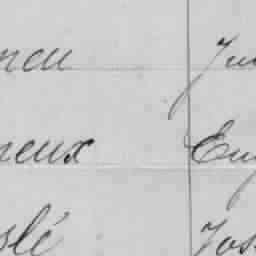 neu Ju
neux Eug
slé Jos